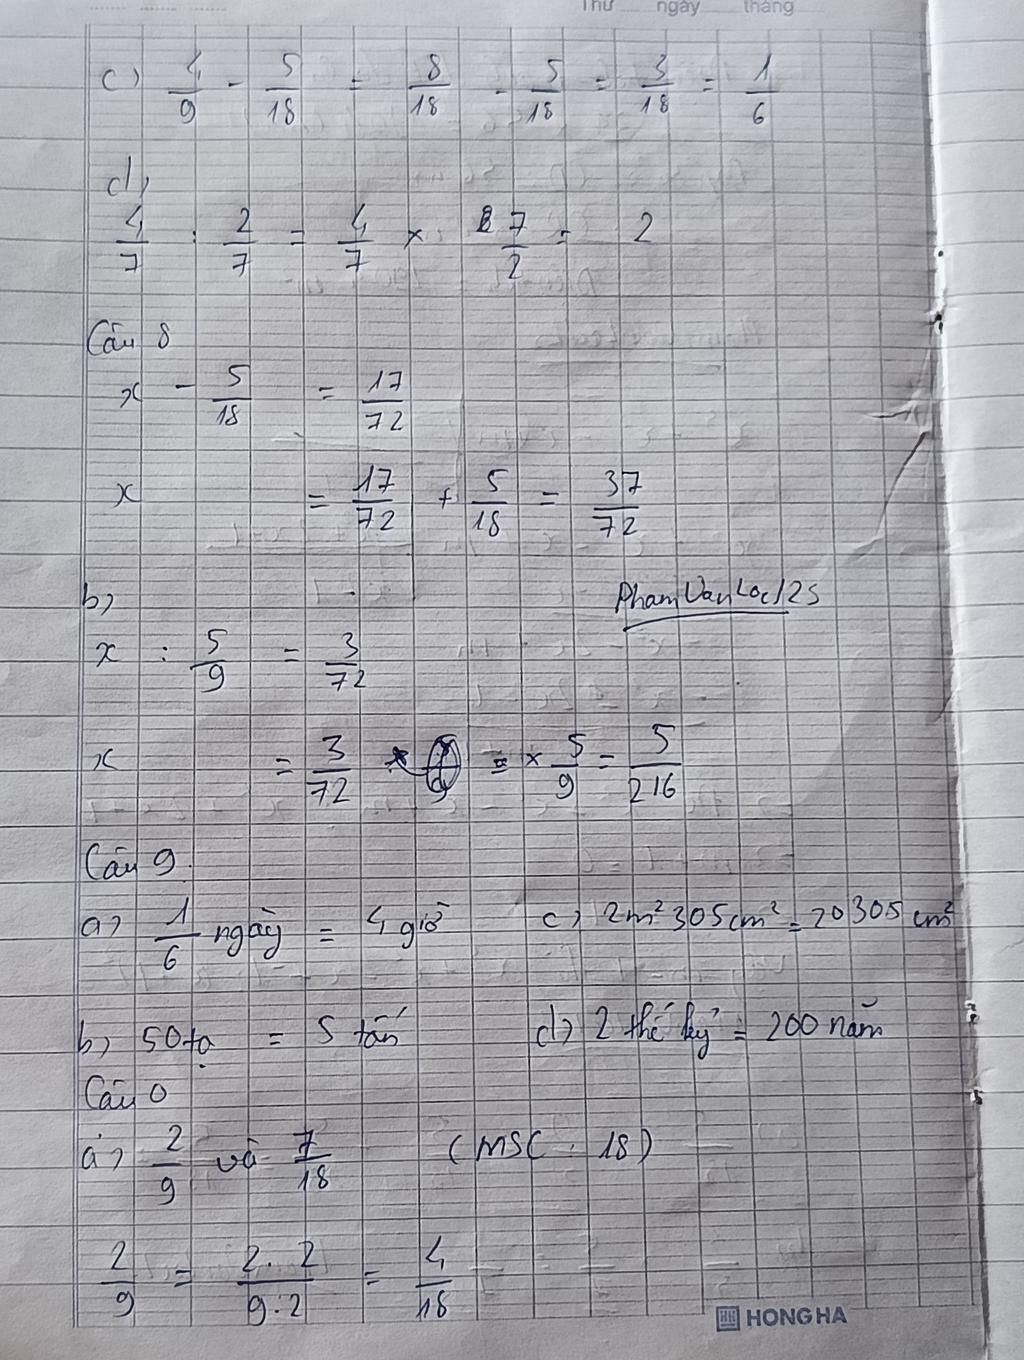 Thứ ngày tháng
c) 4/9 - 5/18 = 8/18 - 5/18 = 3/18 = 1/6
d)
4/7 : 2/7 = 4/7 × 7/2 = 2
Câu 8
x - 5/18 = 17/72
x = 17/72 + 5/18 = 37/72
b)
Pham Van Loc/25
x : 5/9 = 3/72
x = 3/72 = × 5/9 = 5/216
Câu 9
a) 1/6 ngày = 4 giờ c) 2m² 305 cm² = 20305 cm²
b) 50 tạ = 5 tấn d) 2 thế kỷ = 200 năm
Câu 0
a) 2/9 và 7/18 (MSC : 18)
2/9 = 2.2/9.2 = 4/18
HONG HA